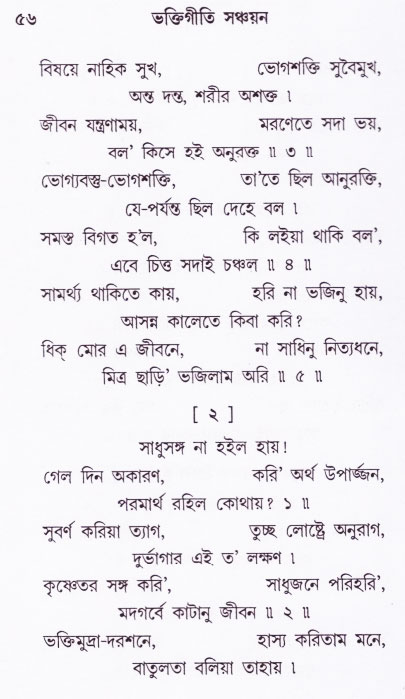 ৫৬ ভক্তিগীতি সঞ্চয়ন
বিষয়ে নাহিক সুখ, ভোগশক্তি সুবৈমুখ,
অন্ত দন্ত, শরীর অশক্ত ।
জীবন যন্ত্রণাময়, মরণেতে সদা ভয়,
বল' কিসে হই অনুরক্ত ॥ ৩ ॥
ভোগ্যবস্তু-ভোগশক্তি, তা'তে ছিল আনুরক্তি,
যে-পর্যন্ত ছিল দেহে বল ।
সমস্ত বিগত হ'ল, কি লইয়া থাকি বল',
এবে চিত্ত সদাই চঞ্চল ॥ ৪ ॥
সামর্থ্য থাকিতে কায়, হরি না ভজিনু হায়,
আসন্ন কালেতে কিবা করি?
ধিক্ মোর এ জীবনে, না সাধিনু নিত্যধনে,
মিত্র ছাড়ি' ভজিলাম অরি ॥ ৫ ॥
[ ২ ]
সাধুসঙ্গ না হইল হায়!
গেল দিন অকারণ, করি' অর্থ উপার্জ্জন,
পরমার্থ রহিল কোথায়? ১ ॥
সুবর্ণ করিয়া ত্যাগ, তুচ্ছ লোষ্ট্রে অনুরাগ,
দুর্ভাগার এই ত' লক্ষণ ।
কৃষ্ণেতর সঙ্গ করি', সাধুজনে পরিহরি',
মদগর্বে কাটানু জীবন ॥ ২ ॥
ভক্তিমুদ্রা-দরশনে, হাস্য করিতাম মনে,
বাতুলতা বলিয়া তাহায় ।